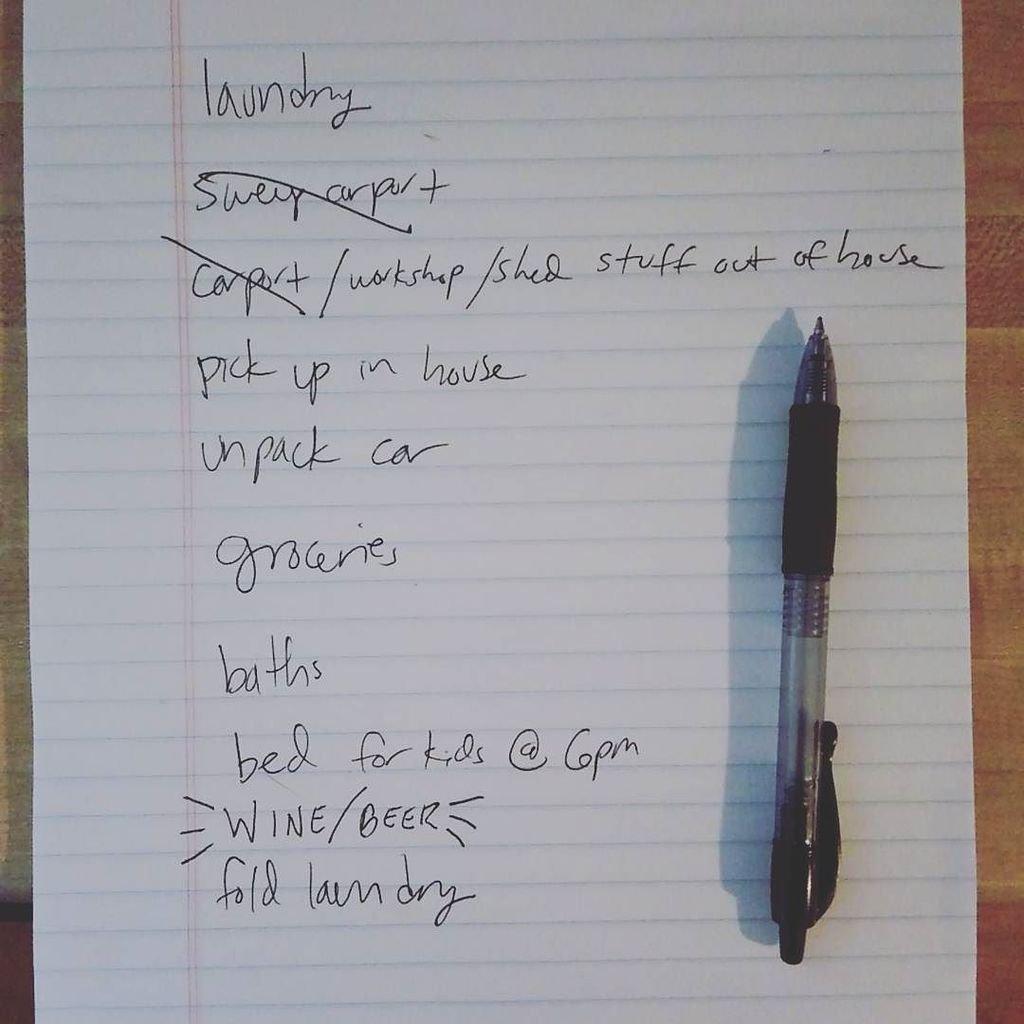 laundry
sweep carport
carport/workshop/shed stuff out of house
pick up in house
unpack car
groceries
baths
bed for kids @ 6pm
WINE/BEER
fold laundry